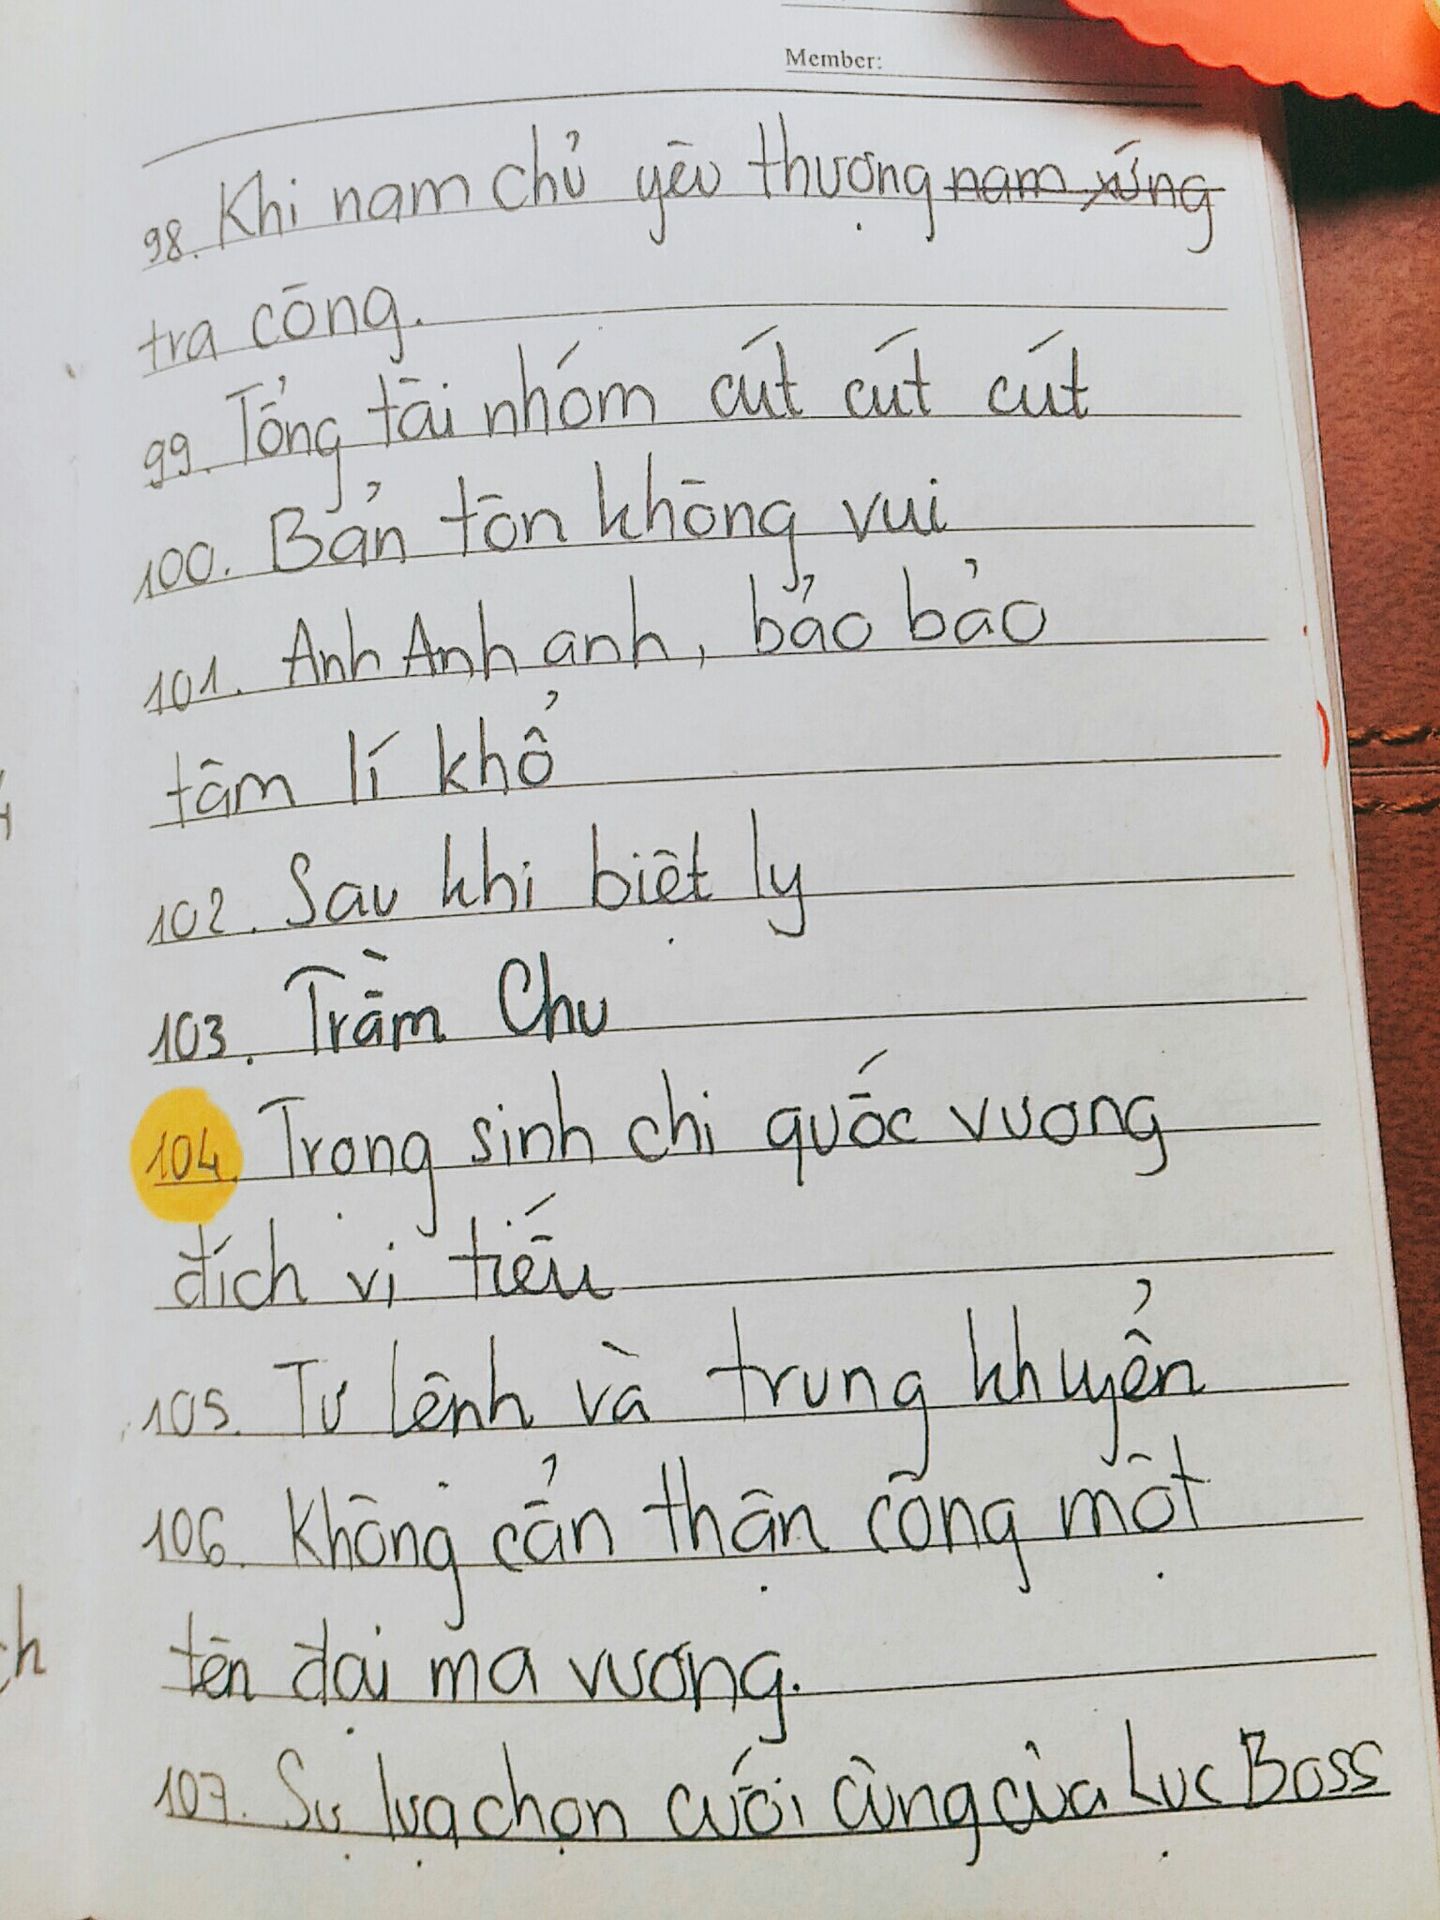 Member:
98. Khi nam chủ yêu thượng nam xứng
tra công.
99. Tổng tài nhóm cút cút cút
100. Bản tôn không vui
101. Anh Anh anh, bảo bảo
tâm lí khổ
102. Sau khi biệt ly
103. Trầm Chu
104. Trọng sinh chi quốc vương
đích vị tiếu
105. Tư lệnh và trung khuyển
106. Không cẩn thận công một
tên đại ma vương.
107. Sự lựa chọn cuối cùng của Lục Boss